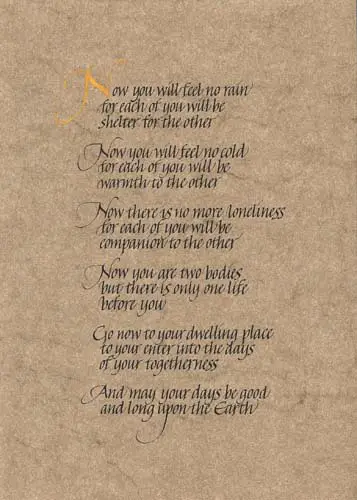 Now you will feel no rain
for each of you will be
shelter for the other
Now you will feel no cold
for each of you will be
warmth to the other
Now there is no more loneliness
for each of you will be
companion to the other
Now you are two bodies
but there is only one life
before you
Go now to your dwelling place
to your enter into the days
of your togetherness
And may your days be good
and long upon the Earth